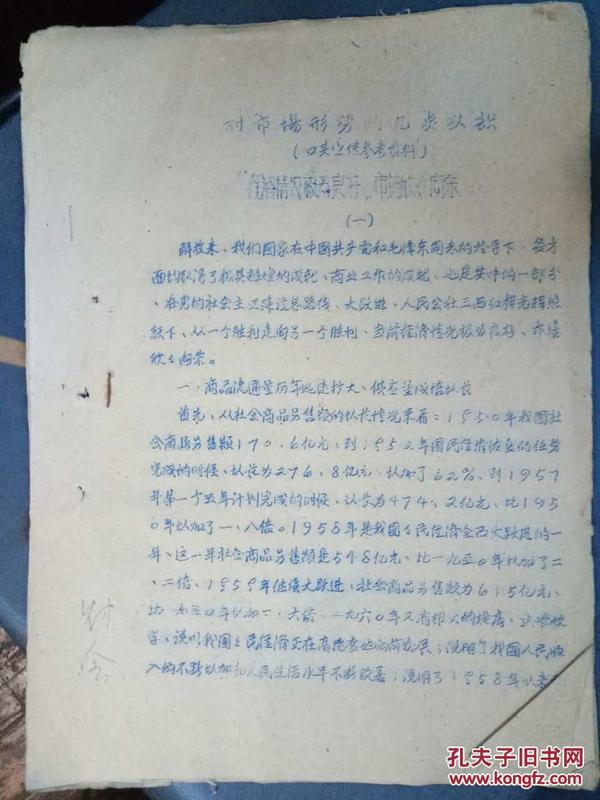 对市场形势的几点认识
(口头宣传参考资料)
经济情况极为良好 市场欣欣向荣
(一)
解放来、我们国家在中国共产党和毛泽东同志的领导下、各方
面均取得了极其辉煌的成就、商业工作的成就、也是其中的一部分、
在党的社会主义建设总路线、大跃进、人民公社三面红旗光辉照
耀下、从一个胜利走向另一个胜利、当前经济情况极为良好、市场
欣欣向荣。
一、商品流通量历年迅速扩大、供应量成倍增长
首先、从社会商品另售额的增长情况来看:1950年我国社
会商品另售额170.6亿元、到1952年国民经济恢复的任务
完成的时候、增长为276.8亿元、增加了62%、到1957
年第一个五年计划完成的时候、增长为474.2亿元、比195
0年增加了一、八倍。1958年是我国国民经济全面大跃进的一
年、这一年社会商品另售额是548亿元、比一九五0年增加了二
、二倍、1959年继续大跃进、社会商品另售额为615亿元、
比一九五0年增加二、六倍、一九六0年又有很大的提高、这些
说明我国国民经济正在高速度地向前发展;说明了我国人民收
入的不断增加和人民生活水平不断改善;说明了1958年以来
财会
孔夫子旧书网
www.kongfz.com